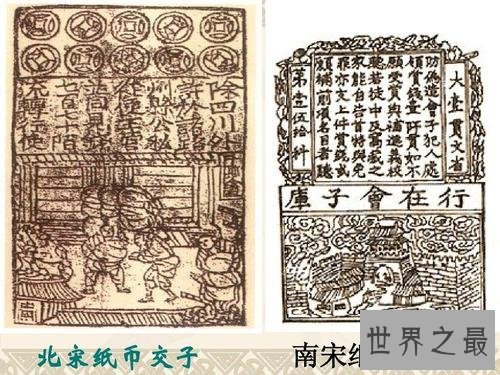 除四川外
許於諸路
州縣公私
從便主管
並同見錢
七百七十陌
流轉行使
大壹貫文省
防偽造會子犯人處
領賞錢壹阡貫如不
願受賞與補進義校
聽若徒中及窩藏之
家能自告首特與免
罪亦支上件賞錢或
願補前項名目者聽
第壹伍給料
行在會子庫
北宋纸币交子
南宋纸
世界之最